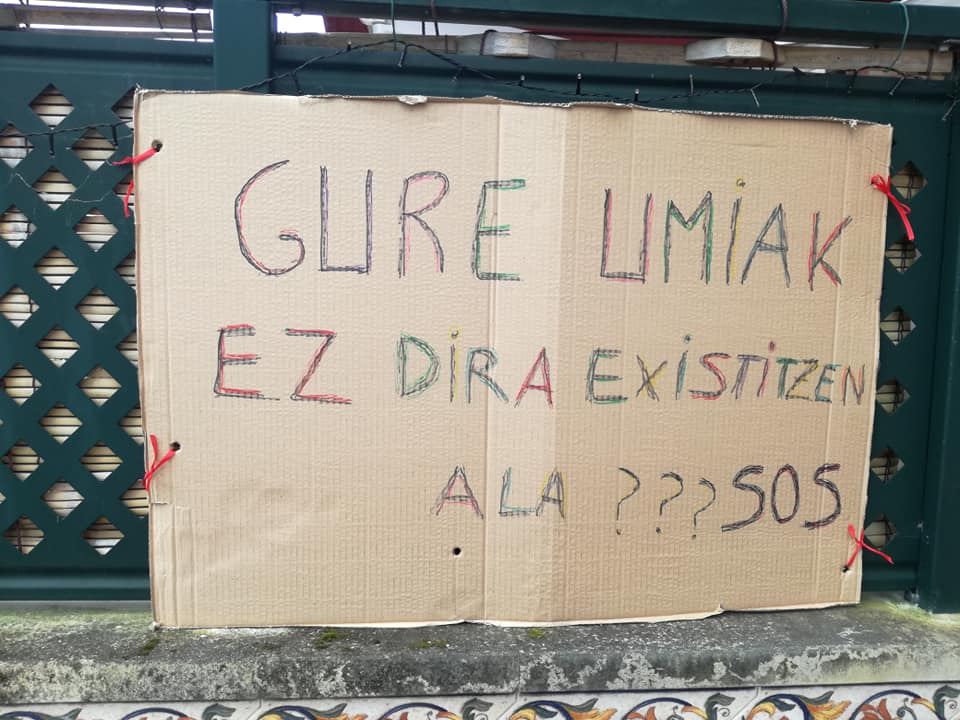 GURE UMIAK
EZ DIRA EXISTITZEN
ALA ??? SOS